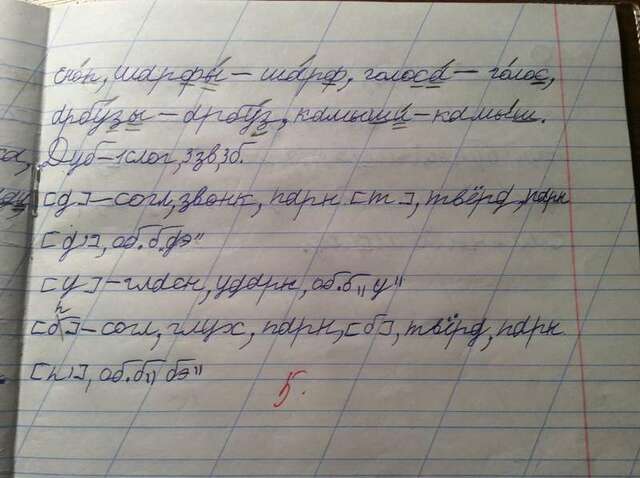 сно́п, шарфы́ – ша́рф, голоса́ – го́лос,
арбу́зы – арбу́з, камыши́ – камы́ш.
Дуб – 1 слог, 3 зв, 3 б.
[д] – согл, звонк, парн [т], твёрд, парн
[д'], об. б. дэ"
[у] – гласн, ударн, об. б „у"
[п] – согл, глух, парн, [б], твёрд, парн
[п'], об. б „бэ"
5.